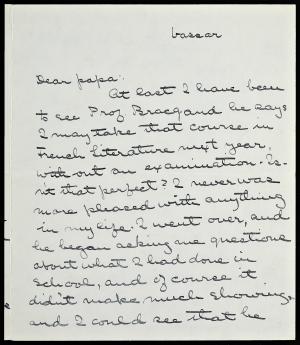 vassar
Dear papa:
At last I have been
to see Prof Bracq and he says
I may take that course in
French literature next year,
with out an examination. Is-
n't that perfect? I never was
more pleased with anything
in my life. I went over, and
he began asking me questions
about what I had done in
school, and of course it
didn't make much showing,
and I could see that he